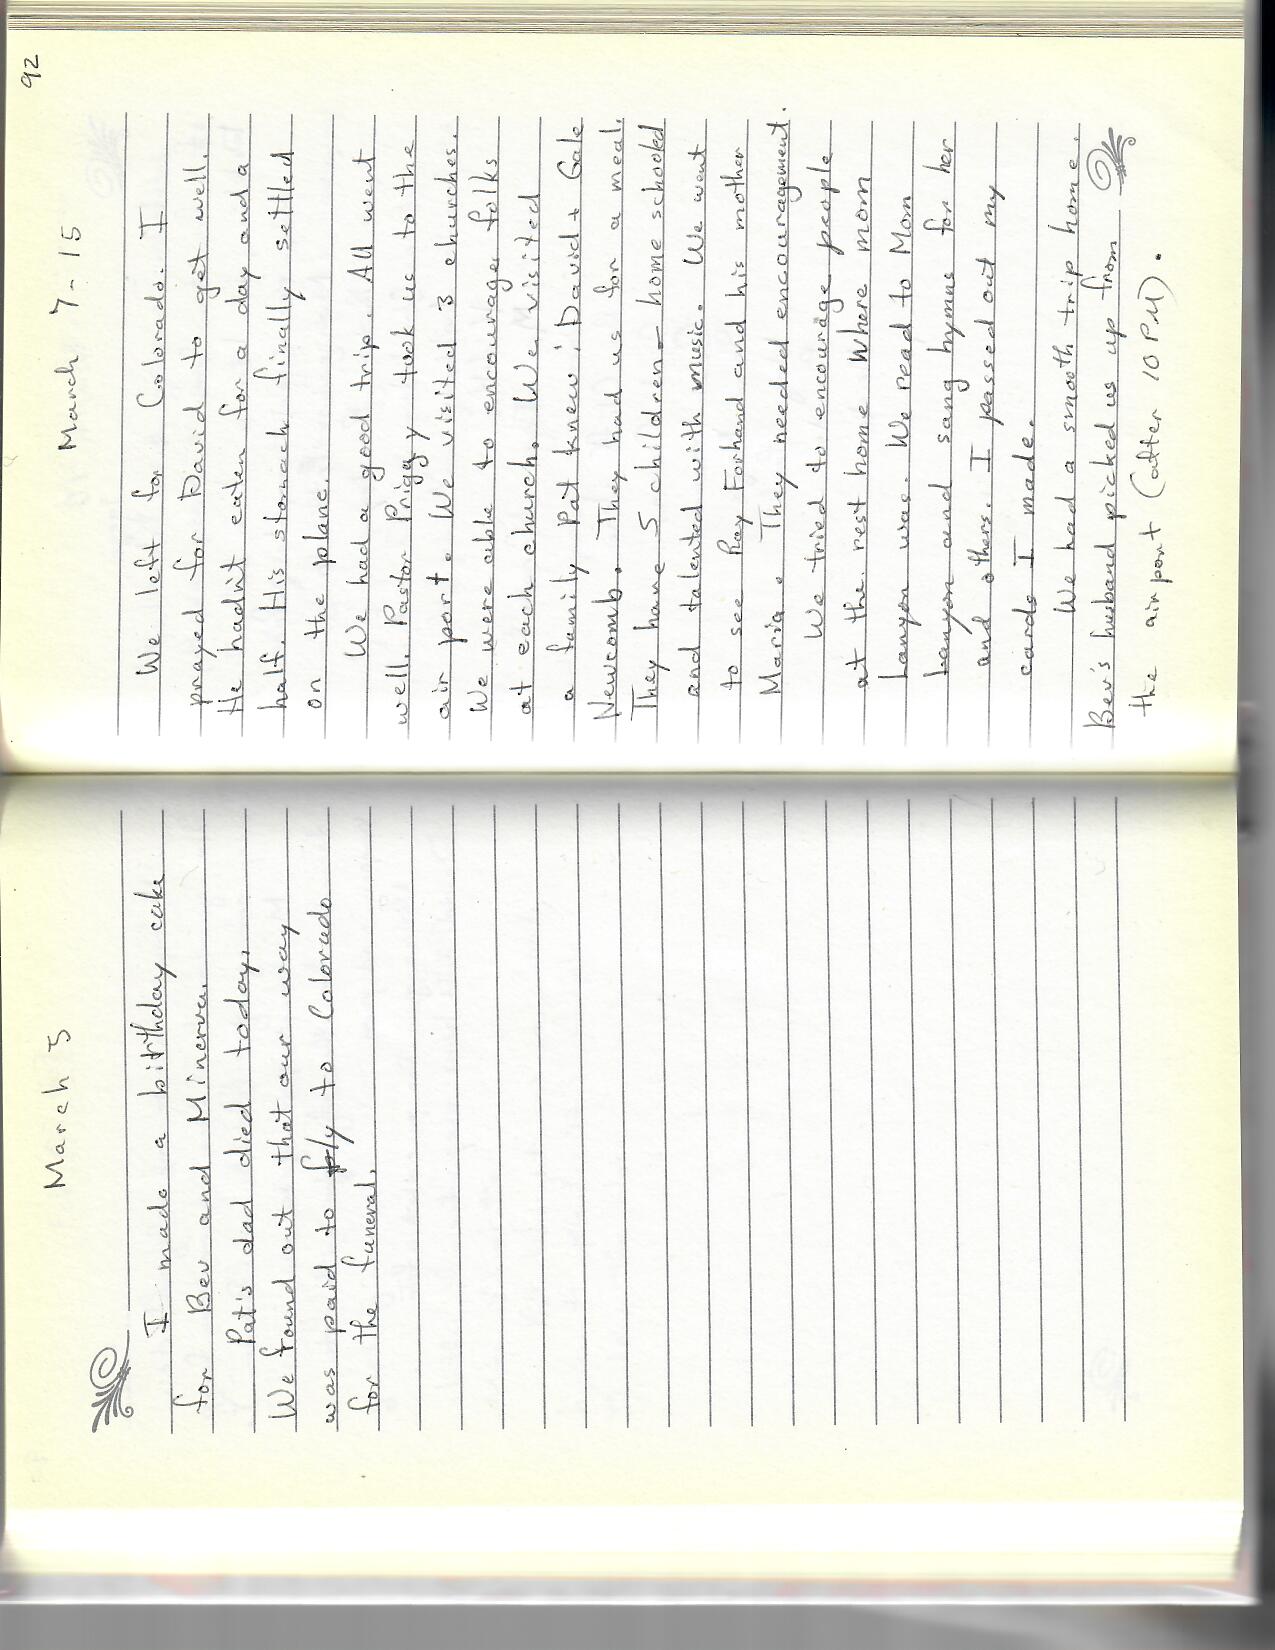 March 5
I made a birthday cake
for Bev and Minerva.
Pat's dad died today.
We found out that our way
was paid to fly to Colorado
for the funeral.
92
March 7-15
We left for Colorado. I
prayed for David to get well.
He hadn't eaten for a day and a
half. His stomach finally settled
on the plane.
We had a good trip. All went
well. Pastor Priggy took us to the
air port. We visited 3 churches.
We were able to encourage folks
at each church. We visited
a family Pat knew: David + Gale
Newcomb. They had us for a meal.
They have 5 children - home schooled
and talented with music. We went
to see Ray Forhand and his mother
Maria. They needed encouragement.
We tried to encourage people
at the rest home where mom
Lanyon was. We read to Mom
Lanyon and sang hymns for her
and others. I passed out my
cards I made.
We had a smooth trip home.
Bev's husband picked us up from
the airport (after 10 PM).